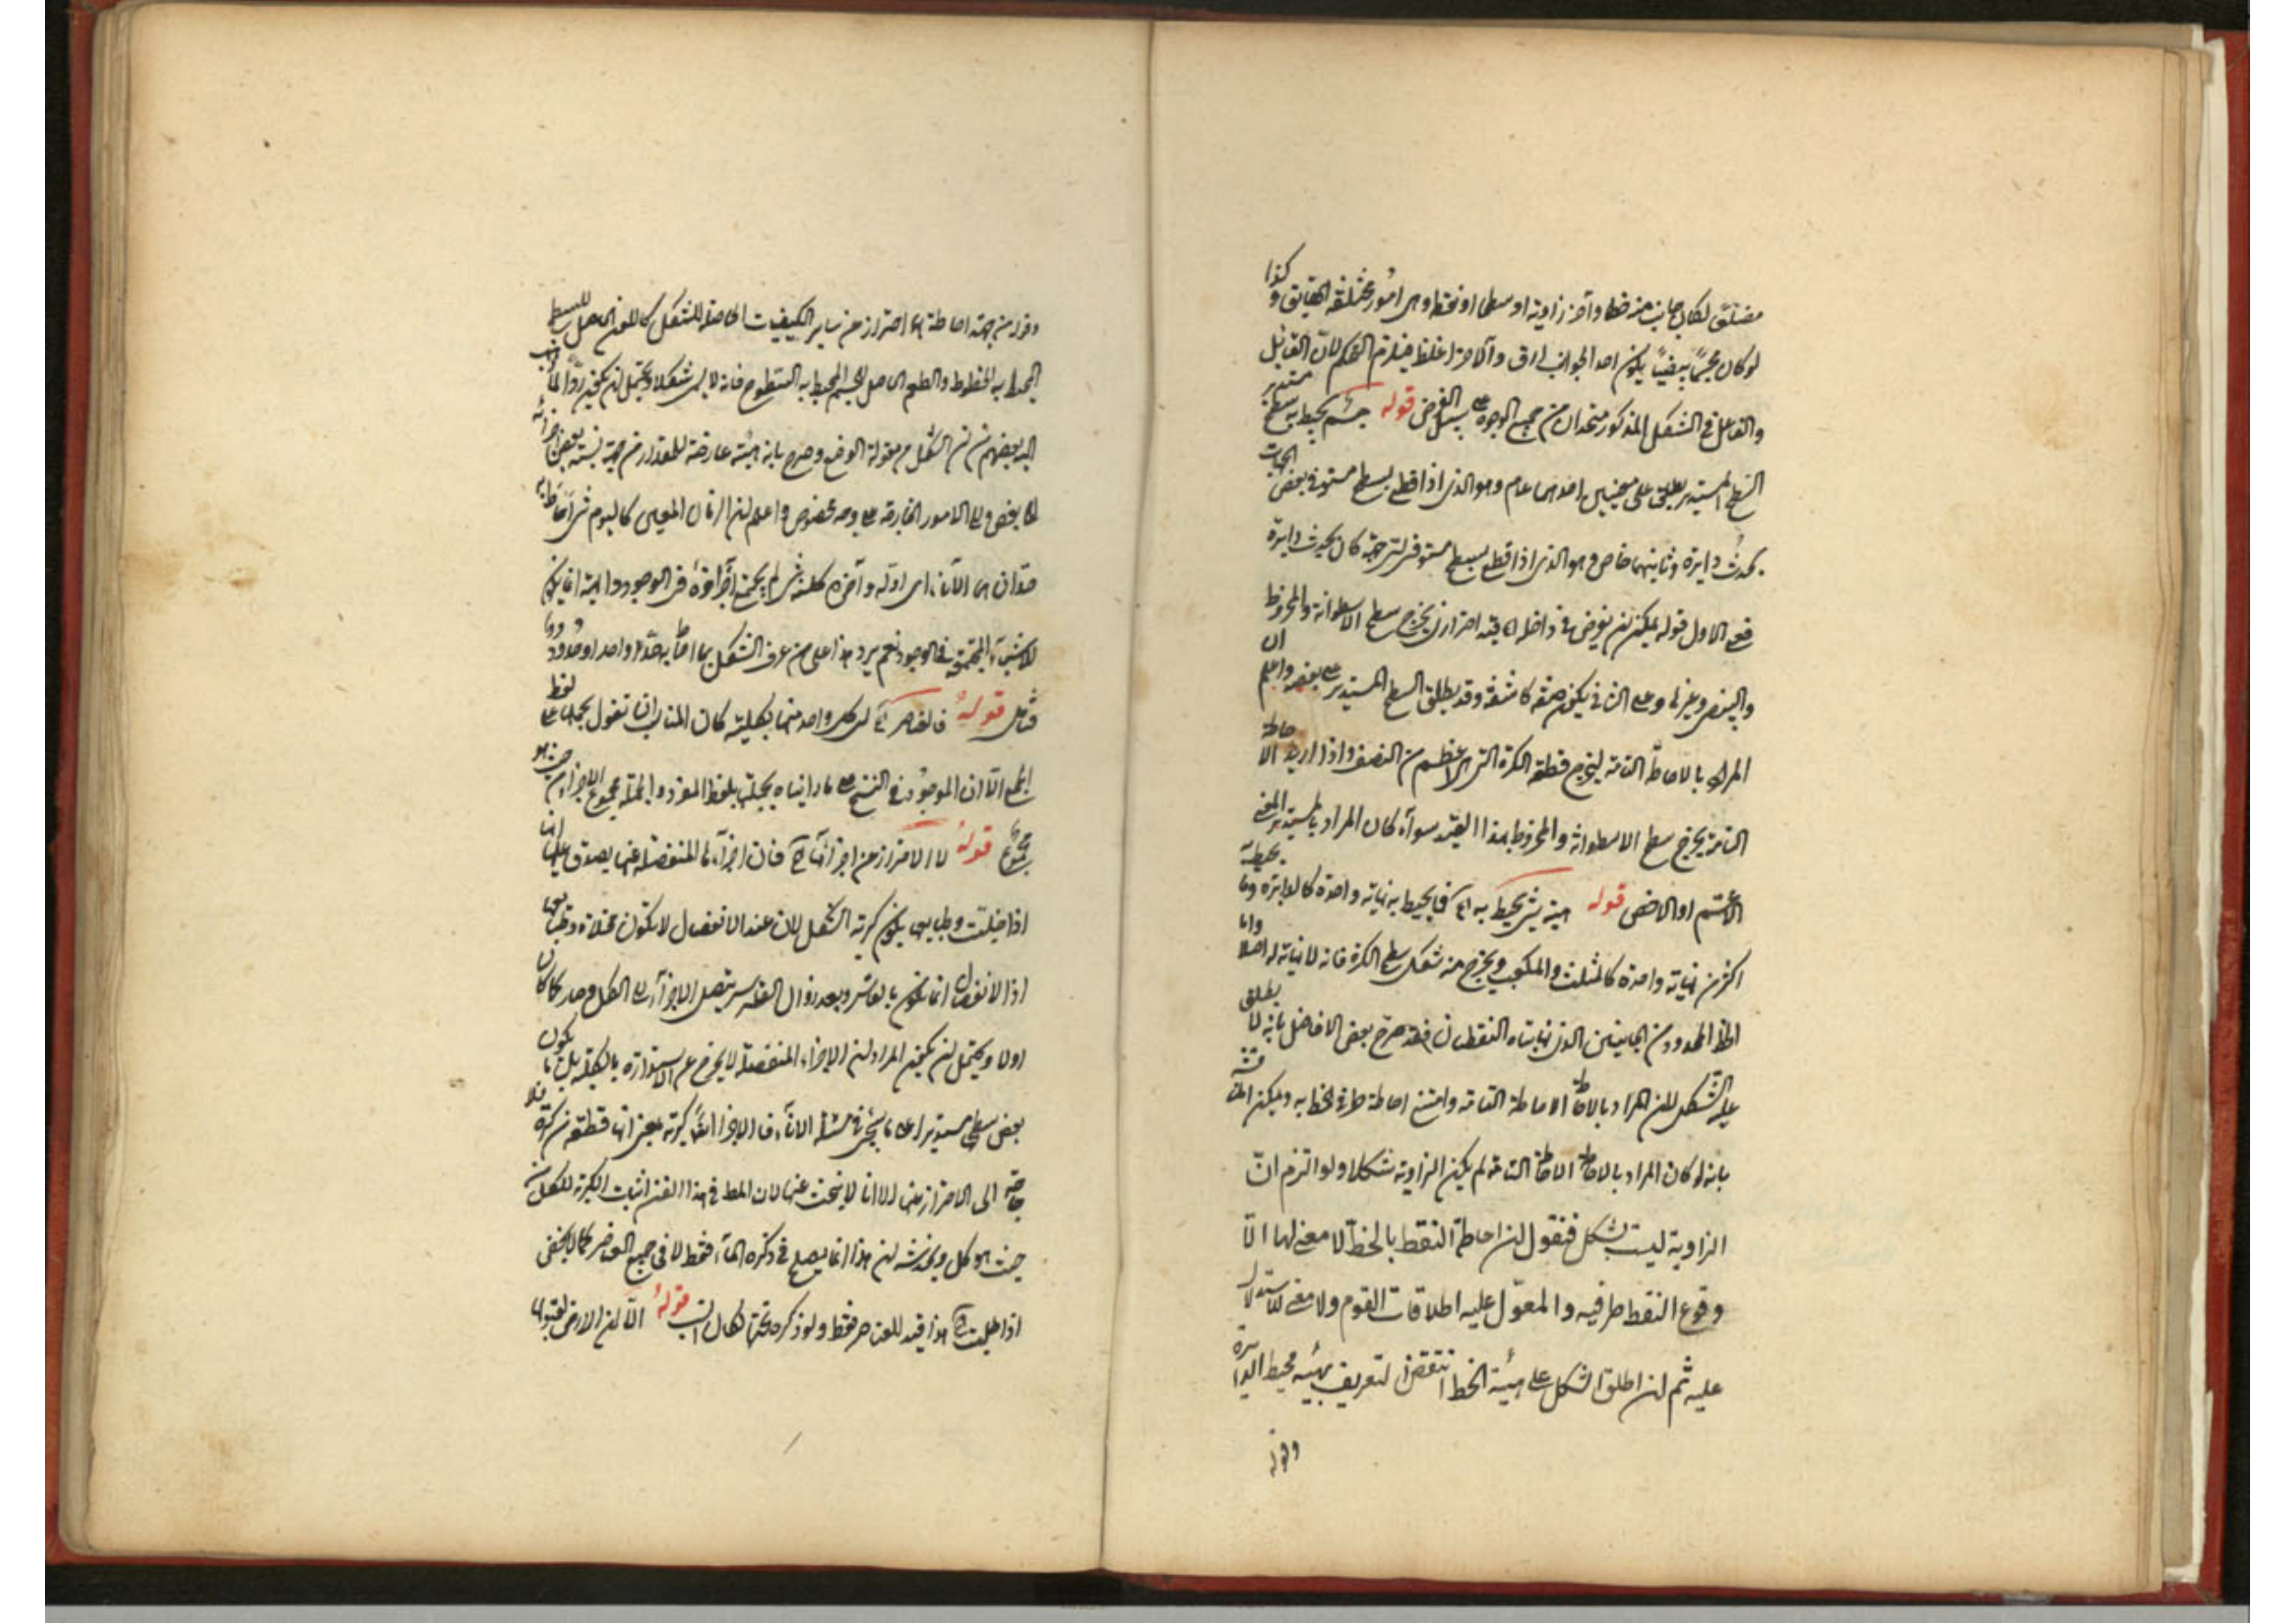 مضلعًا لكان جانب منه خطا وآخر زاوية او سطحا او نقطة وهى امور مختلفة الحقايق وكذا
لو كان مجسمًا بيضيًا يكون احد الجوانب ادق والآخر اغلظ فيلزم التحكم لان القابل
والفاعل فى الشكل المذكور متحدان من جميع الوجوه على سبيل الفرض قوله جسم يحيط به سطح مستدير
السطح المستدير يطلق على معنيين احدهما عام وهو الذى اذا قطع بسطح مستو فى بعض الجهات
يحدث دايرة وثانيهما خاص وهو الذى اذا قطع بسطح مستو فى اى جهة كان يحدث دايرة
فعلى الاول قوله يمكن ان يفرض فى داخله الخ قيد احترازى يخرج سطح الاسطوانة والمخروط
والبيضى وغيرها وعلى الثانى يكون صفة كاشفة وقد يطلق السطح المستدير على بعضه واعلم ان
المراد بالاحاطة التامة ليخرج قطعة الكرة التى هى اعظم من النصف واذا اريد الاحاطة
التامة يخرج سطح الاسطوانة والمخروط بهذا القيد سواء كان المراد بالمستدير المعنى
الاعم او الاخص قوله هيئة شئ يحيط به الخ فما يحيط به نهاية واحدة كالدايرة وما يحيط به
اكثر من نهاية واحدة كالمثلث والمكعب ويخرج منه شكل سطح الكرة فانه لا نهاية له اصلا واما
الخط المحدود من الجانبين الذى نهايتاه النقطتان فقد صرح بعض الافاضل بانه لا يطلق
عليه الشكل لان المراد بالاحاطة الاحاطة التامة وامتنع احاطة طرفى الخط به ويمكن المناقشة
بانه لو كان المراد بالاحاطة الاحاطة التامة لم يكن الزاوية شكلا ولو التزم ان
الزاوية ليست بشكل فنقول ان احاطة النقط بالخط لا معنى لها الا
وقوع النقط طرفيه والمعول عليه اطلاقات القوم ولا معنى للاستدلال
عليه ثم ان اطلق الشكل على هيئة الخط انتقض التعريف بهيئة محيط الدايرة
وقوله
وقوله من جهة احاطة الخ احتراز عن ساير الكيفيات الحاصلة للمتشكل كاللون الحاصل للسطح
المحيط به الخطوط والطعم الحاصل للجسم المحيط به السطوح فانه لا يسمى شكلا ويحتمل ان يكون ردا لما ذهب
اليه بعضهم من ان الشكل من مقولة الوضع وصرح بانه هيئة عارضة للمقدار من جهة نسبة بعض اجزائه
الى بعض والى الامور الخارجة على وجه مخصوص واعلم ان الزمان المعين كاليوم شئ احاط به
حدان هى الآنات اى اوله وآخره لكنه شئ لم يجتمع اجزاؤه فى الوجود والهيئة انما يكون
للاشياء المجتمعة فى الوجود نعم يرد هذا على من عرف الشكل بما احاط به حد واحد او حدود
فتأمل قوله فالعناصر الخ اى كل واحد منها بكليته كان المناسب ان يقول بجملها على لفظ
الجمع الا ان الموجود فى النسخ على ما رايناه بجملتها بلفظ المفرد والجملة مجموع الاجزاء من حيث هو
مجموع قوله لا الاحتراز عن اجزائها الخ فان اجزاءها المنفصلة عنها يصدق عليها انها
اذا خليت وطبايعها يكون كرية الشكل لان عند الانفصال لا تكون مخلاة وطبايعها
اذ الانفصال انما يكون بالقاسر وبعد زوال القاسر يتصل الاجزاء الى الكل وصار كما كان
اولا ويحتمل ان يكون المراد ان الاجزاء المنفصلة لا يخرج عن الاستدارة بالكلية بل يكون
بعض سطحها مستديرا على ما سيجئ فى مسئلة الاناء فالاجزاء ايضا كرية بمعنى انها قطعة من كرة فلا
حاجة الى الاحتراز عنها الا انا لا نبحث عنها لان المط فى هذا الفن اثبات الكرية للكل من
حيث هو كل ويخدشه ان هذا انما يصلح فى ذكره الماء فقط لا فى جميع العناصر كما لا يخفى
اذا خليت الخ هذا قيد للعناصر فقط ولو ذكره تحتها لكان انسب قوله الا ان الارض لقبولها